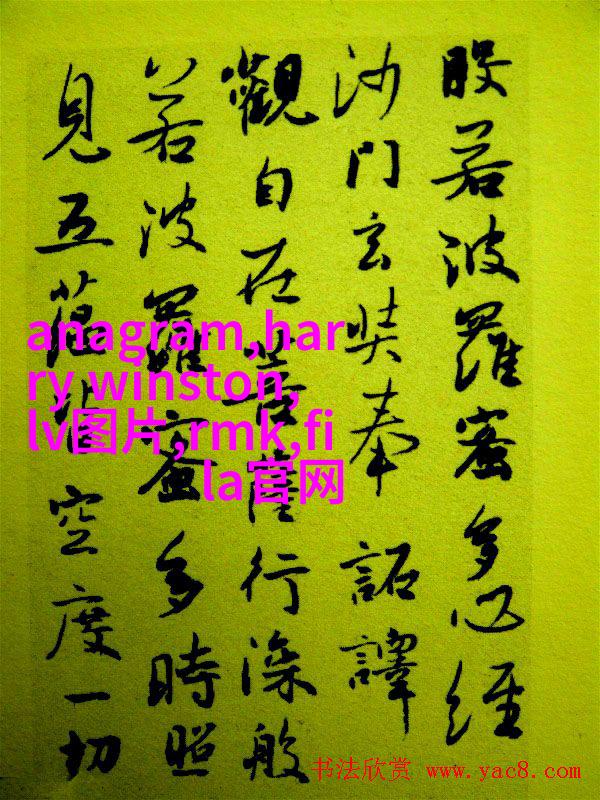 般若波羅蜜多心經
沙門玄奘奉 詔譯
觀自在菩薩行深般
若波羅蜜多時照
見五蘊皆空度一切
anagram,har
ry winston,
lv图片,rmk,fi
la官网
书法欣赏 www.yac8.com